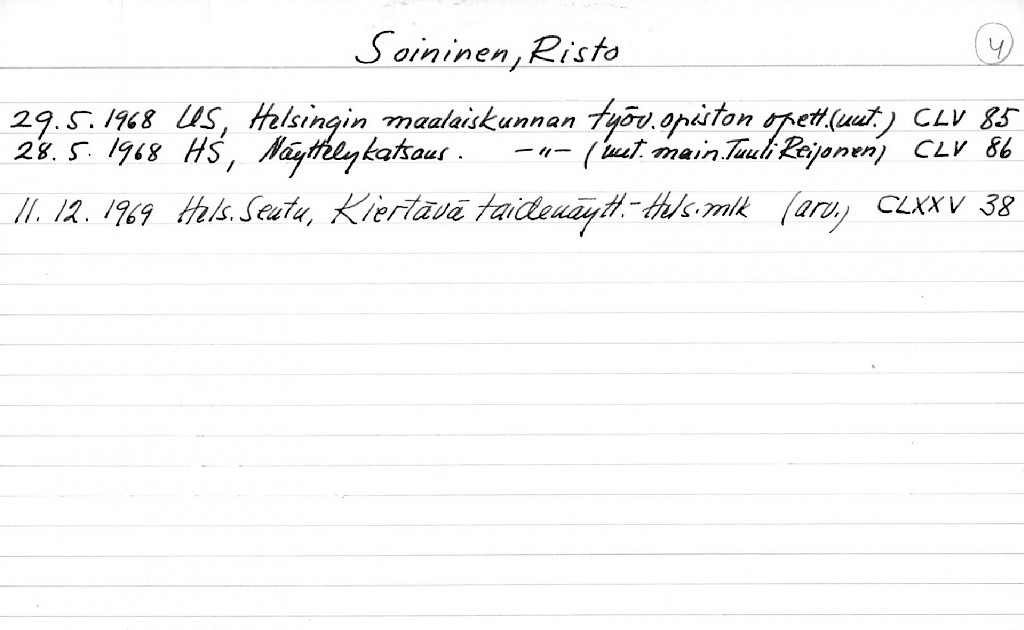 Soininen, Risto
4
29.5.1968 US, Helsingin maalaiskunnan työv.opiston opett.(uut.) CLV 85
28.5.1968 HS, Näyttelykatsaus. -"- (uut. main. Tuuli Reijonen) CLV 86
11.12.1969 Hels.Seutu, Kiertävä taidenäytt.-Hels.mlk (arv.) CLXXV 38